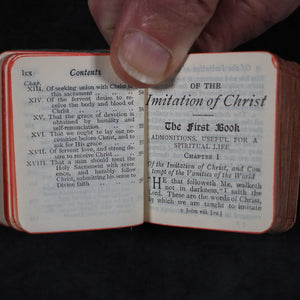 lxx Contents
Chap.
XIII. Of seeking union with Christ in
this sacrament
XIV. Of the fervent desire to re-
ceive the body and blood of
Christ
XV. That the grace of devotion is
obtained by humility and
self-renunciation
XVI. That we ought to lay our ne-
cessities before Christ, and to
ask for His grace
XVII. Of fervent love, and strong de-
sire to receive Christ
XVIII. That a man should treat the
Holy Sacrament with rever-
ence, and humbly follow
Christ, submitting his sense to
Divine faith
OF THE
Imitation of Christ
The First Book
ADMONITIONS, USEFUL FOR A
SPIRITUAL LIFE
CHAPTER I
Of the Imitation of Christ, and Con
tempt of the Vanities of the World
HE that followeth Me, walketh
not in darkness, saith the
Lord. These are the words of Christ,
by which we are taught to imitate
1 John viii.